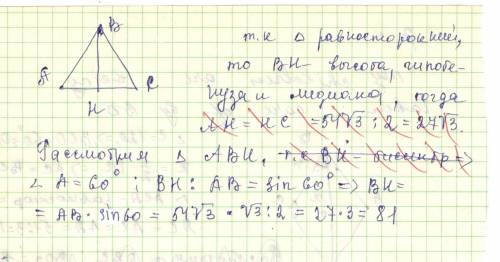 B
A
C
H
т.к △ равносторонний,
то BH – высота, гипоте-
нуза и медиана, тогда
AH = HC = 54√3 : 2 = 27√3.
Рассмотрим △ ABH, т.к BH – биссектр ⇒
∠ A = 60° ; BH : AB = sin 60° ⇒ BH =
= AB · sin 60 = 54√3 · √3 : 2 = 27 · 3 = 81